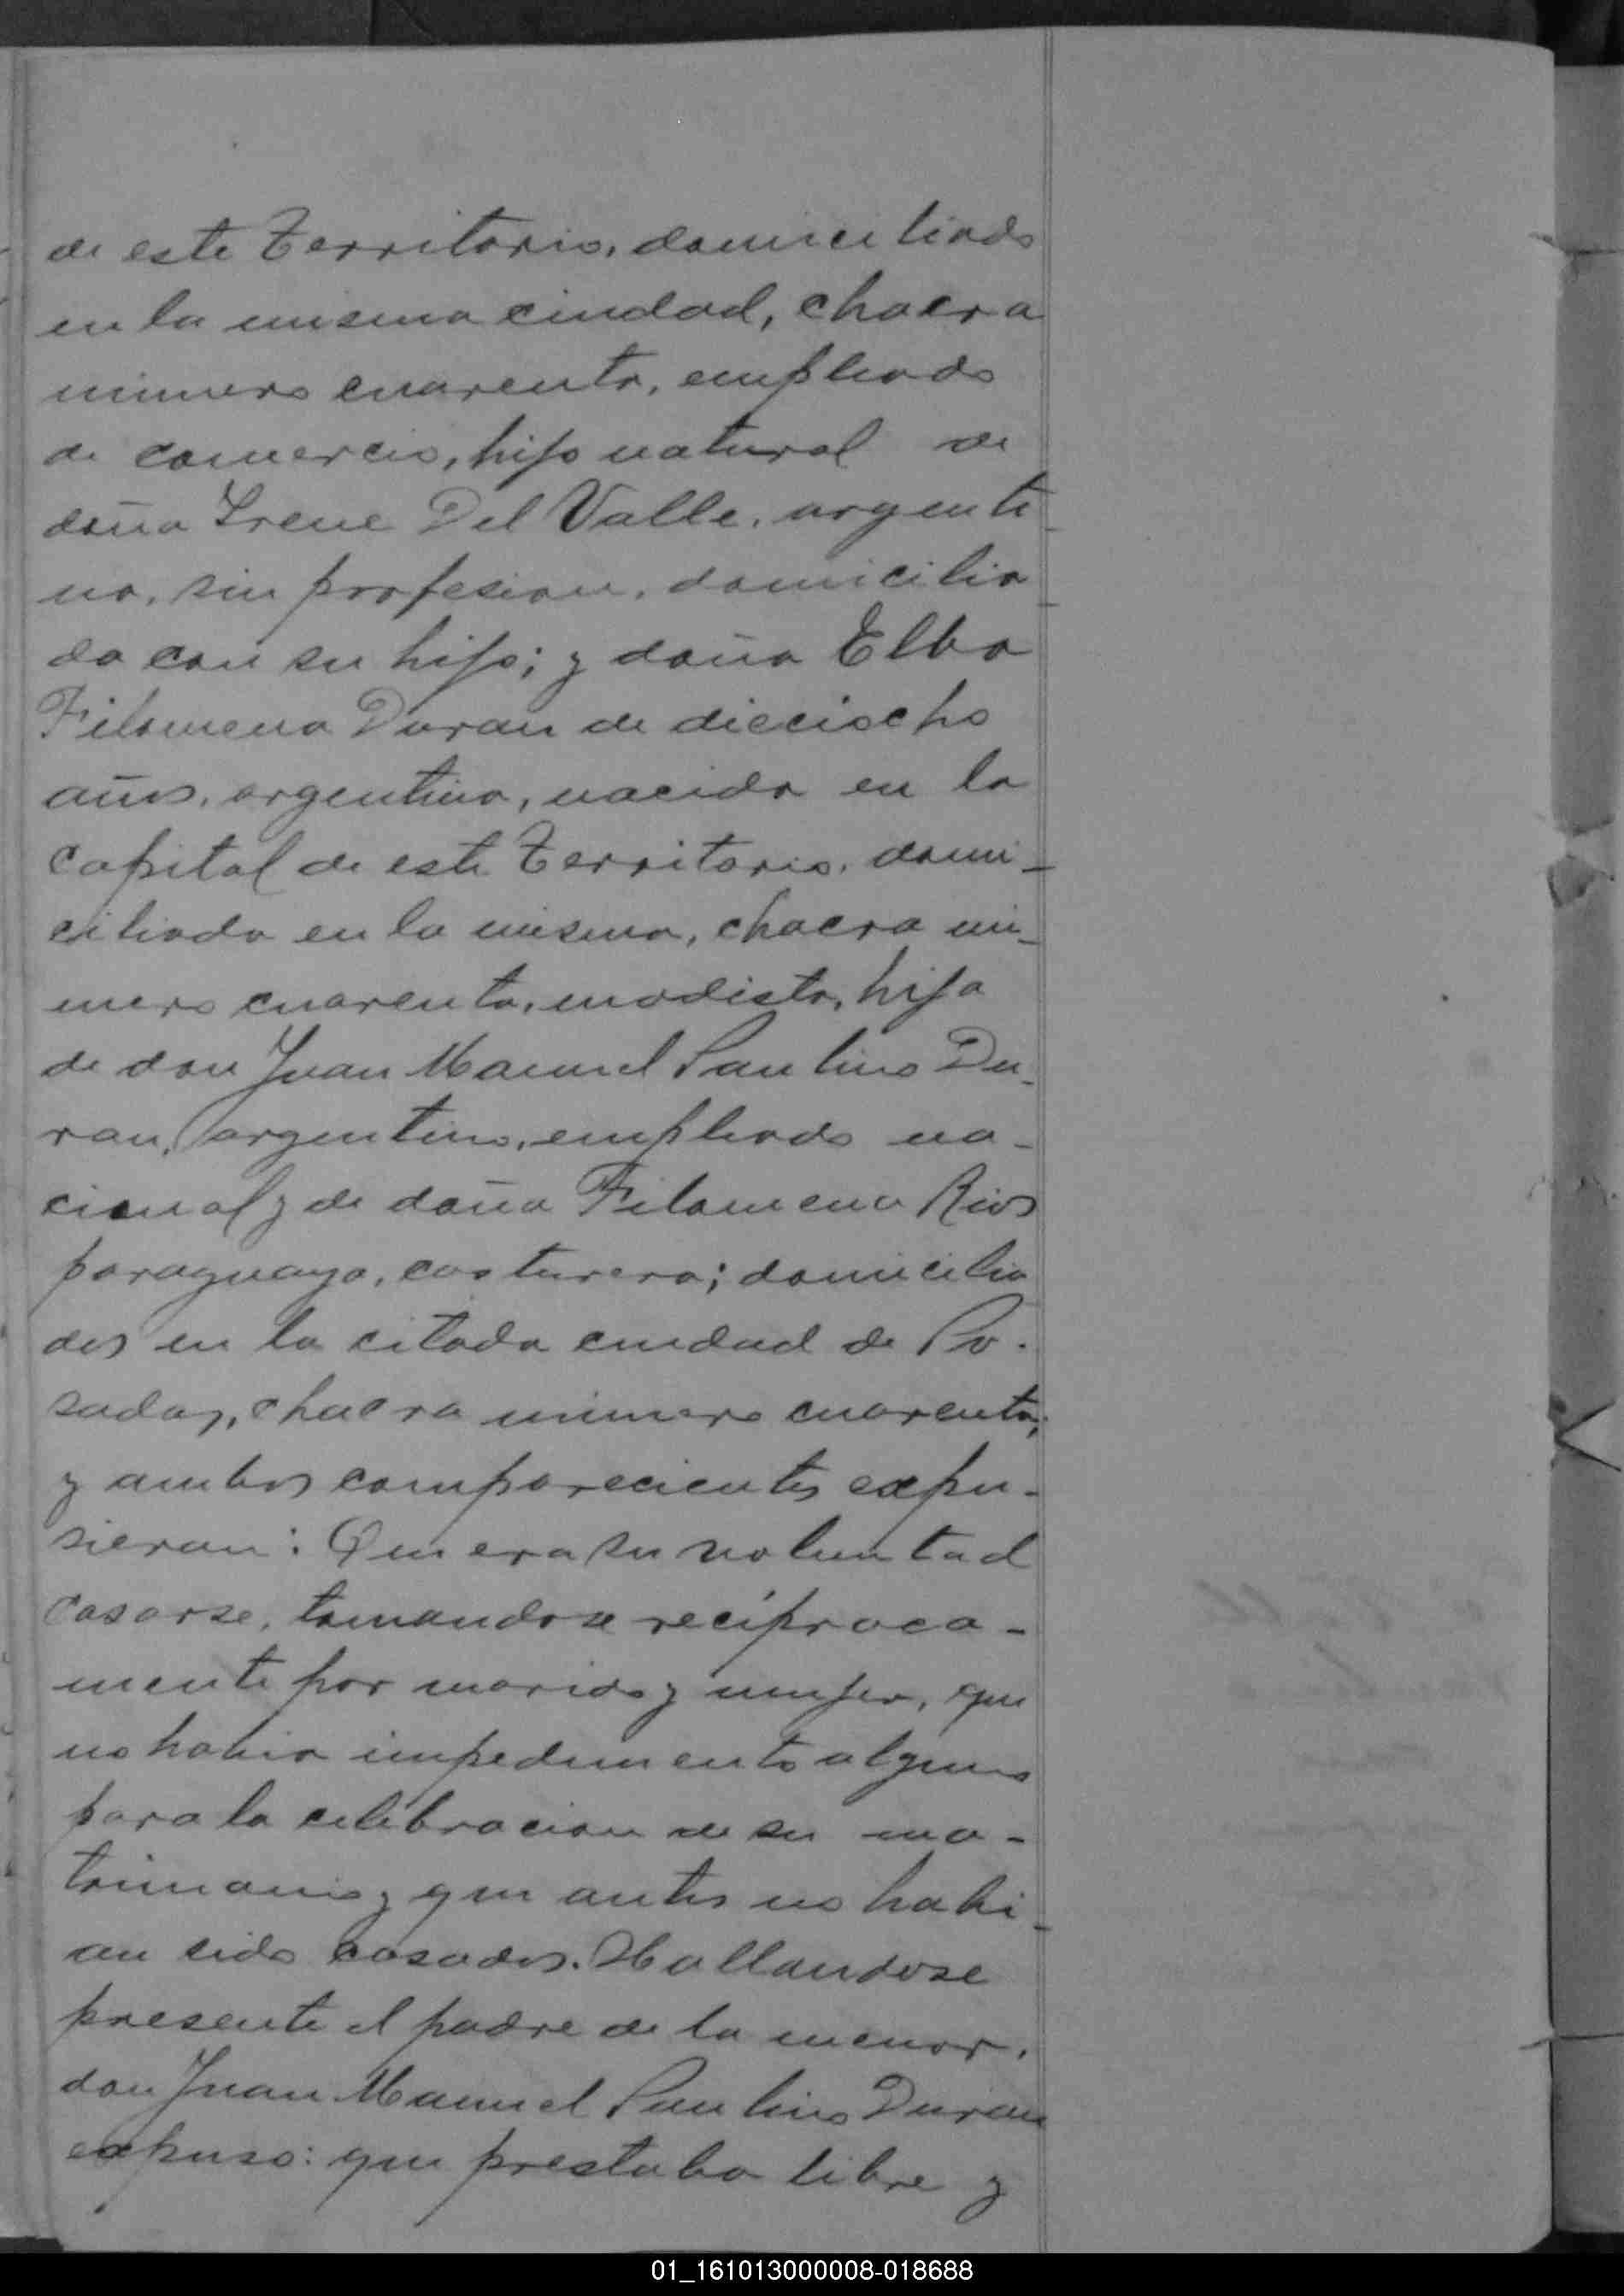 de este Territorio, domiciliado
en la misma ciudad, chacra
número cuarenta, empleado
de comercio, hijo natural de
doña Irene Del Valle, argenti-
na, sin profesion, domicilia-
da con su hijo; y doña Elba
Filomena Duran de dieciocho
años, argentina, nacida en la
Capital de este Territorio, domi-
ciliada en la misma, chacra nú-
mero cuarenta, modista, hija
de don Juan Manuel Paulino Du-
ran, argentino, empleado na-
cional y de doña Filomena Rios
paraguaya, costurera; domicilia
dos en la citada ciudad de Po-
sadas, chacra número cuarenta;
y ambos comparecientes expu-
sieron: Que era su voluntad
casarse, tomandose reciproca-
mente por marido y mujer, que
no habia impedimento alguno
para la celebracion de su ma-
trimonio y que antes no habi-
an sido casados. Hallandose
presente el padre de la menor,
don Juan Manuel Paulino Duran
expuso: que prestaba libre y
01_161013000008-018688